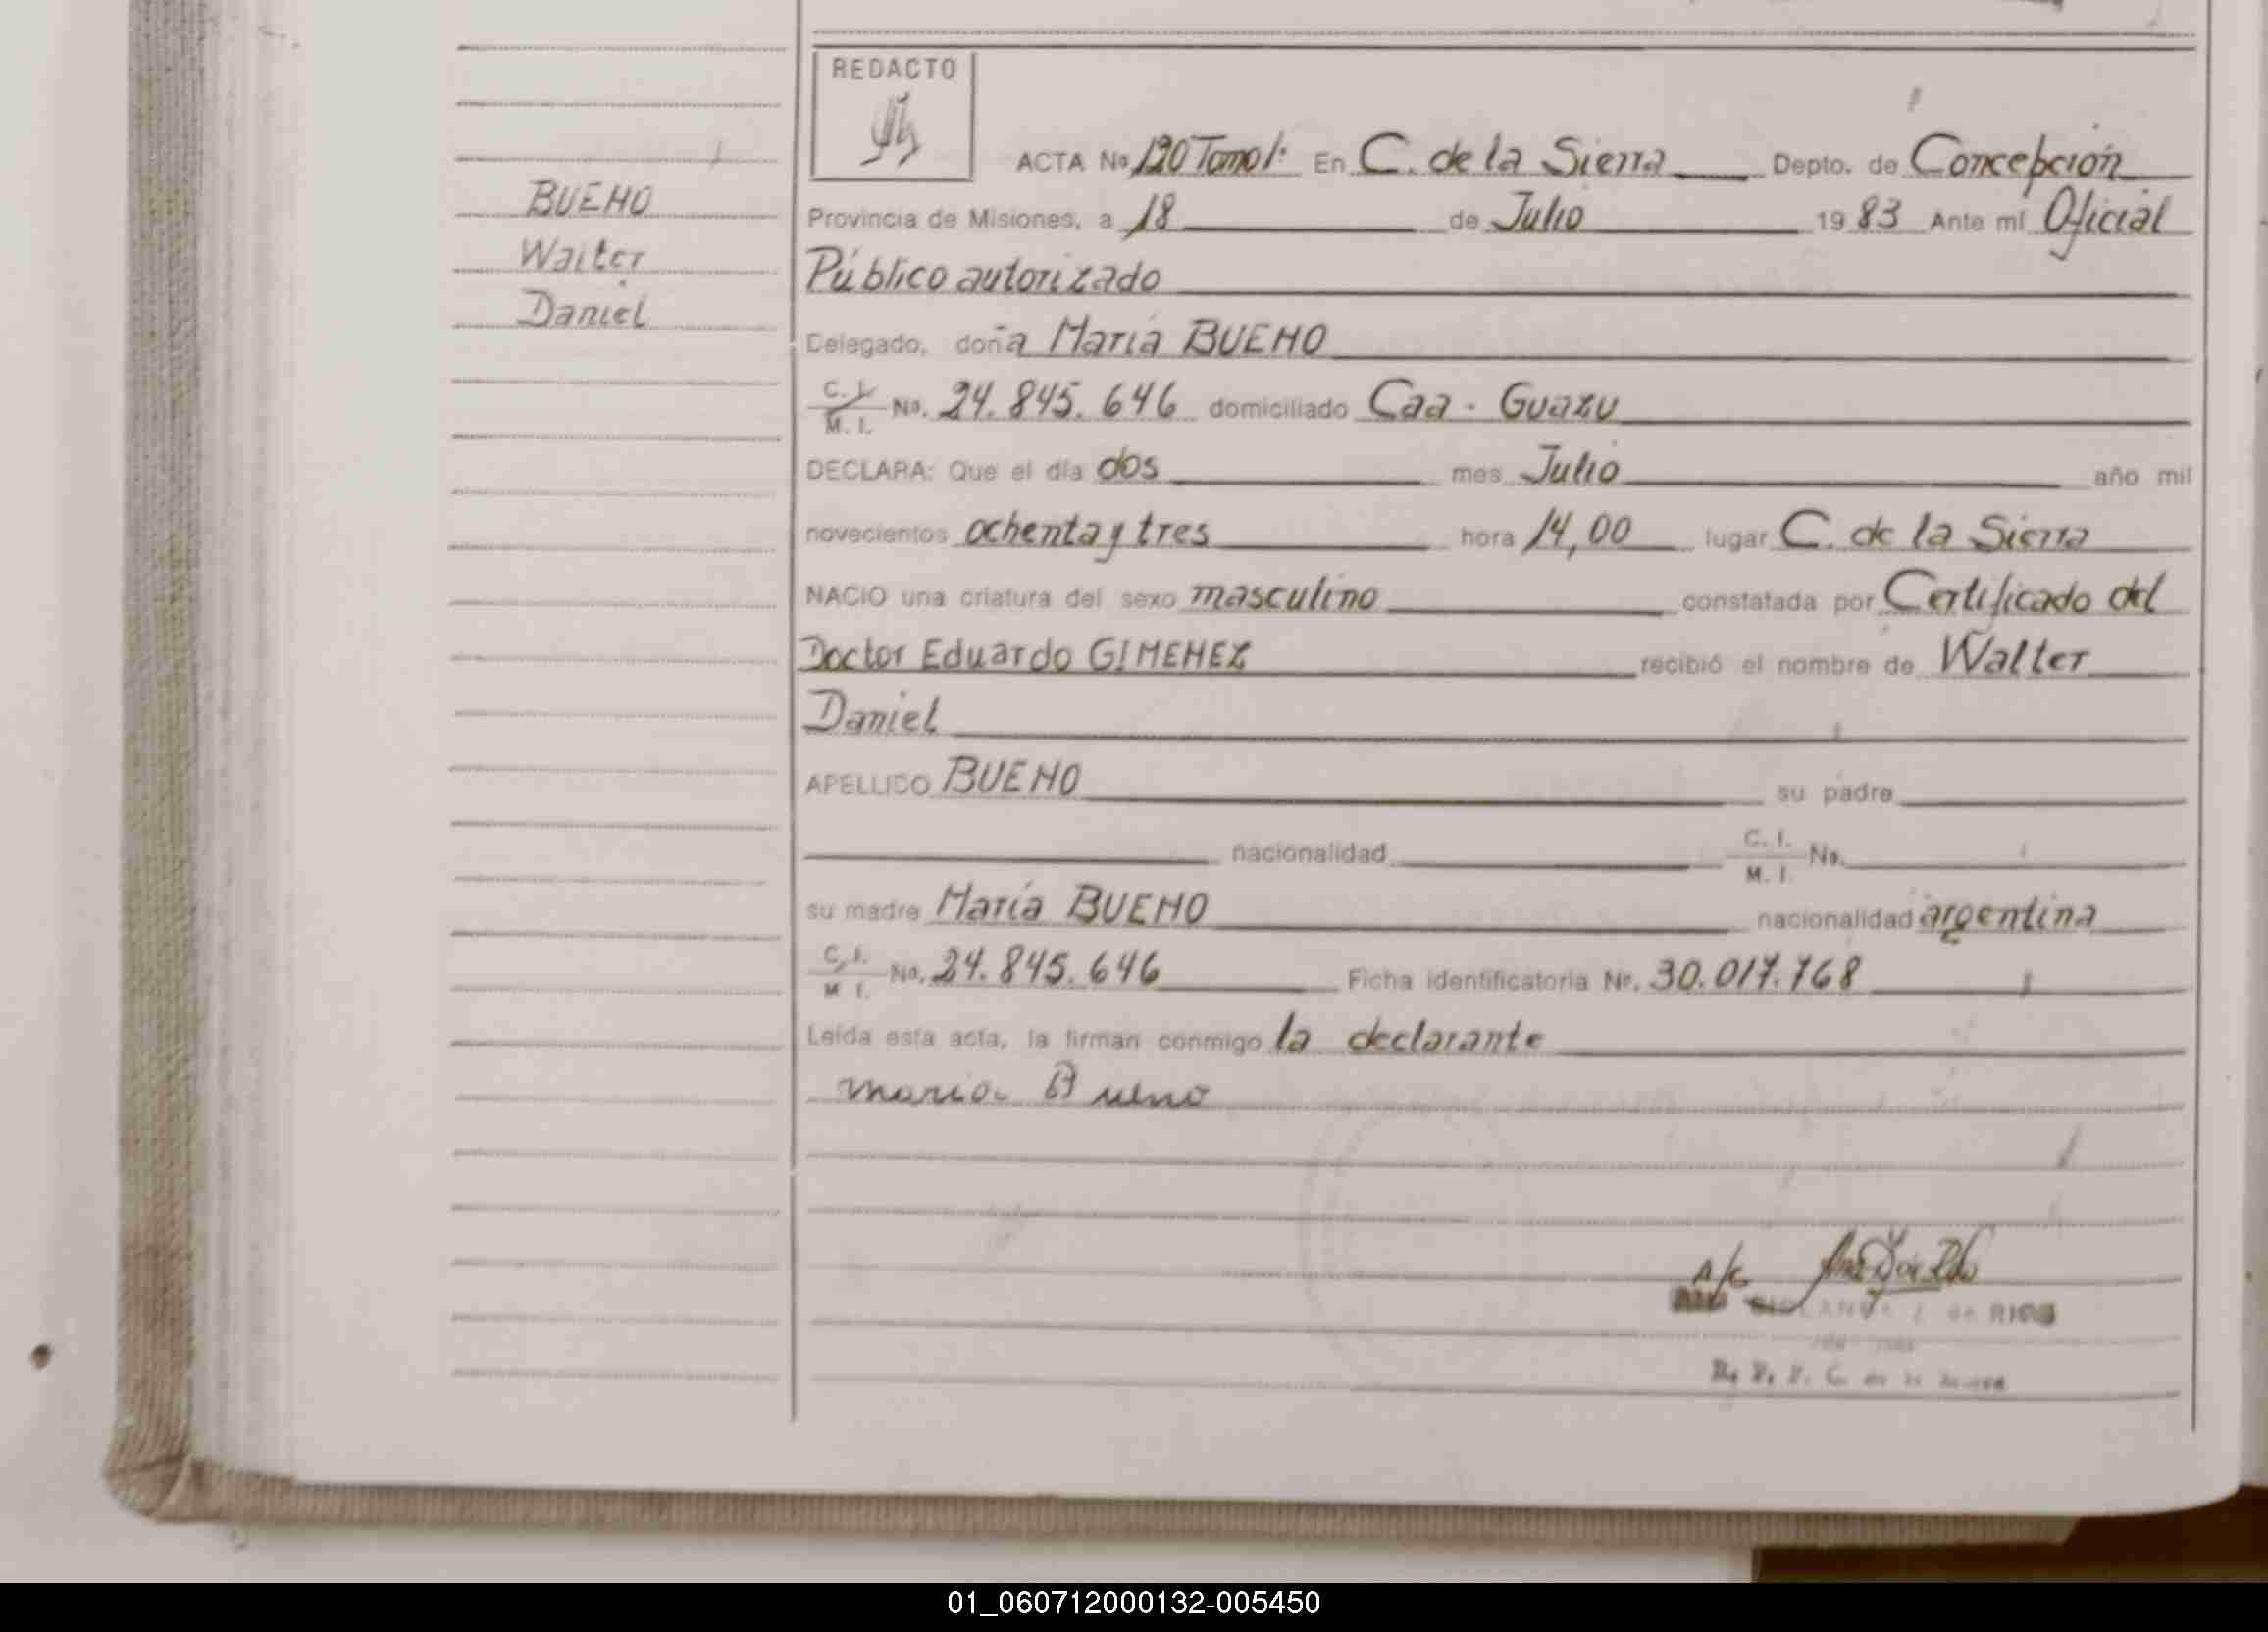 REDACTO
ACTA No 120 Tomo 1º En C. de la Sierra Depto. de Concepción
BUENO
Provincia de Misiones, a 18 de Julio 1983 Ante mí Oficial
Walter
Público autorizado
Daniel
Delegado, doña María BUENO
C. I. M. I. No. 24.845.646 domiciliado Caa - Guazu
DECLARA: Que el día dos mes Julio año mil
novecientos ochenta y tres hora 14,00 lugar C. de la Sierra
NACIO una criatura del sexo masculino constatada por Certificado del
Doctor Eduardo GIMENEZ recibió el nombre de Walter
Daniel
APELLIDO BUENO su padre
nacionalidad C. I. M. I. No.
su madre María BUENO nacionalidad argentina
C. I. M. I. No. 24.845.646 Ficha identificatoria Nr. 30.017.768
Leída esta acta, la firman conmigo la declarante
maria Bueno
A/C
de RIOS
01_060712000132-005450